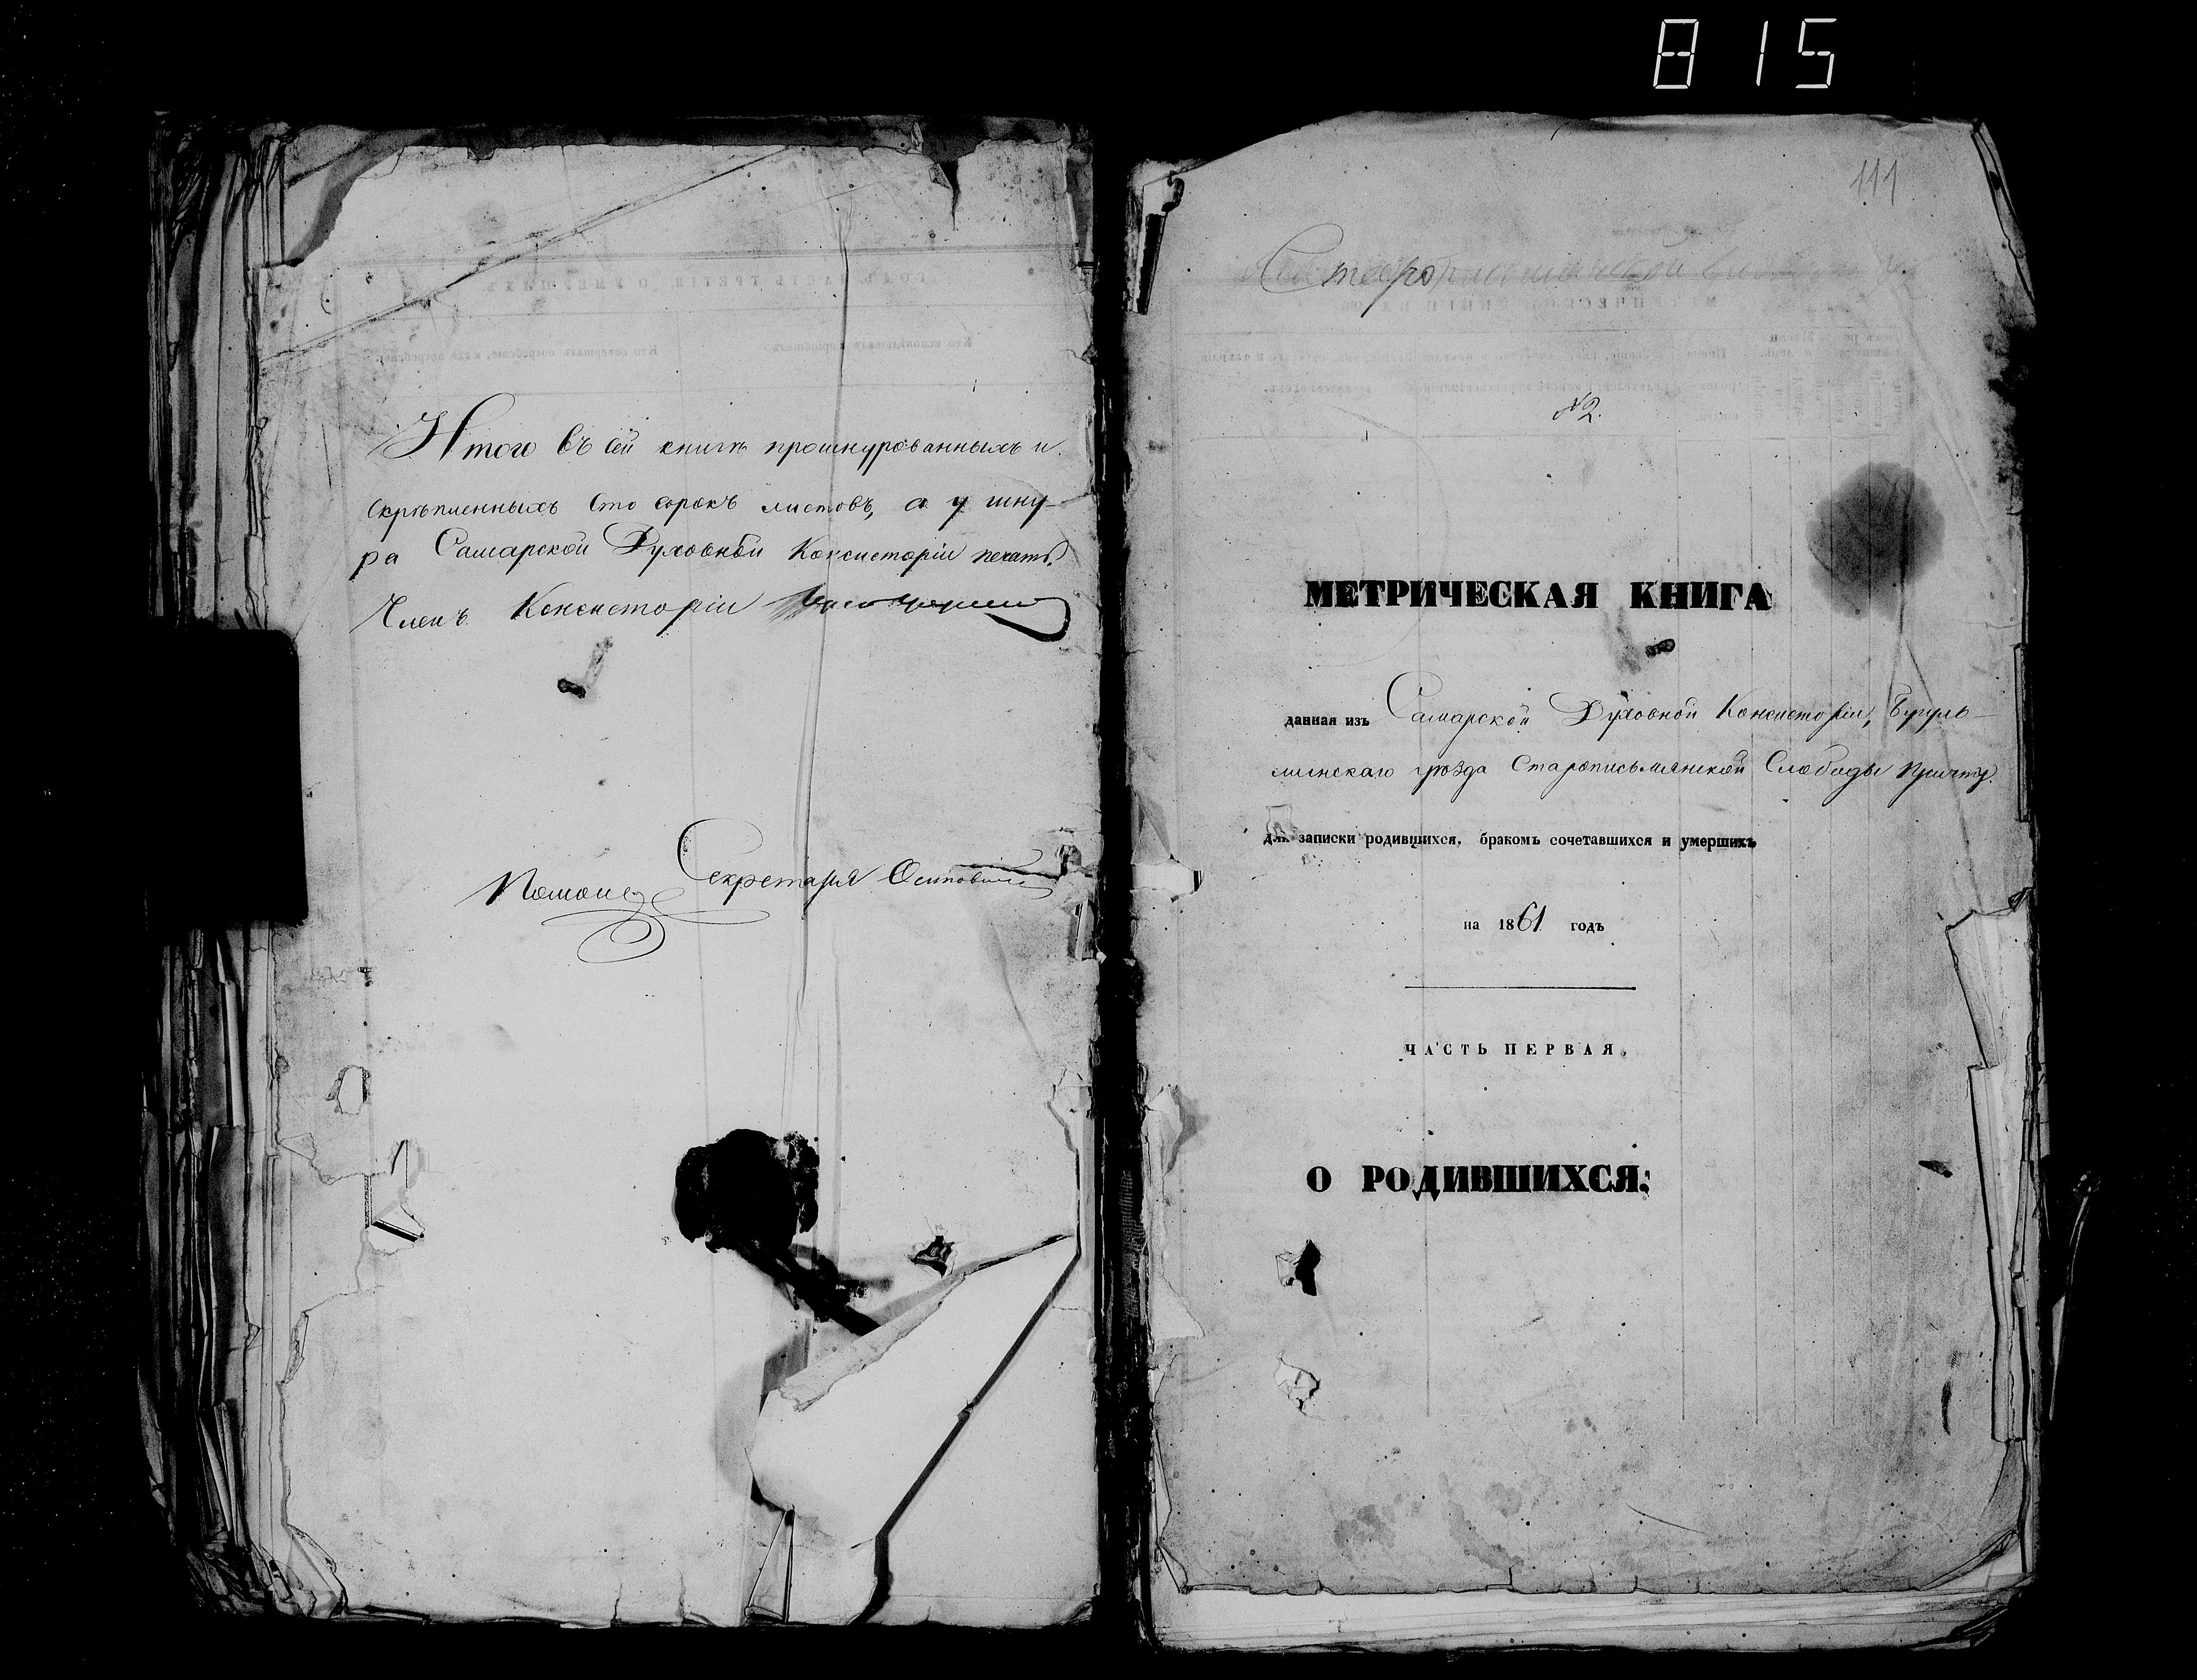 815
Итого въ сей книгѣ прошнурованныхъ и
скрѣпленныхъ сто сорокъ листовъ, а у шну-
ра Самарской Духовной Консисторіи печать.
Членъ Консисторіи
Секретаря Осипович
111
№ 2.
МЕТРИЧЕСКАЯ КНИГА
данная изъ Самарской Духовной Консисторіи, Бугуль-
минскаго уѣзда Старописьмянской Слободы причту
для записки родившихся, бракомъ сочетавшихся и умершихъ
на 1861 годъ
ЧАСТЬ ПЕРВАЯ.
О РОДИВШИХСЯ.